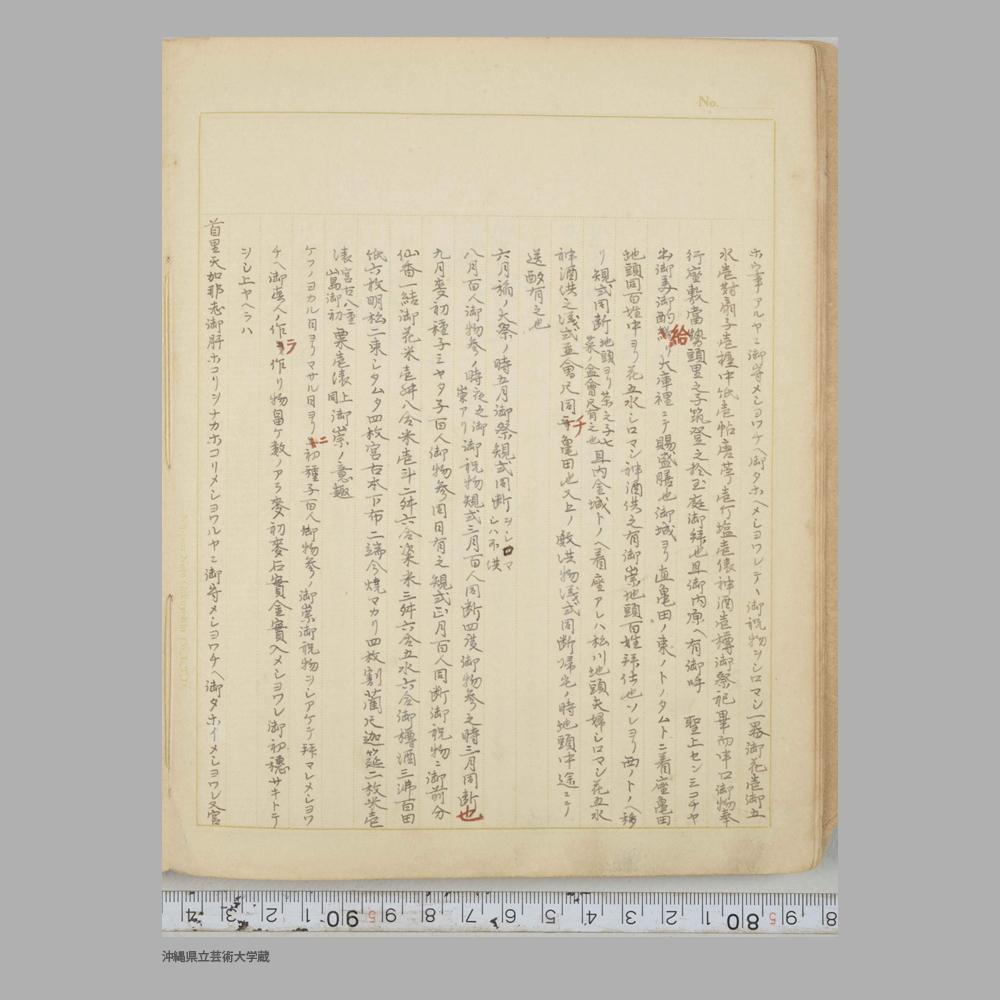 No.
ホウ事アルヤニ御等メシヨワチヘ御タホヘメシヨワレテヽ御祝物ヲシロマシ一器御花壱御五
水壱対扇子壱握中紙壱帖唐苧壱斤塩壱俵神酒壱樽御祭祀畢而串口御物奉
行座敷當勢頭里之子筑登之於玉庭御拝也且御内原ヘ有御呼 聖上センミコチヤ
出御美御酌給リ大庫裡ニテ賜盛膳也御城ヨリ直亀田ノ東ノトノタムトニ着座亀田
地頭同百姓中ヨリ花五水シロマシ神酒供之有御崇地頭百姓拝仕也ソレヨリ西ノトノヘ移
リ規式同断地頭ヨリ茶之子七菜ノ盆會尺有之也且内金城トノヘ着座アレハ松川地頭夫婦シロマシ花五水
神酒供之儀式並會尺同チ亀田也又上ノ敷供物儀式同断帰宅ノ時地頭中途ニテ
送酌有之也
六月稲ノ大祭ノ時五月御祭規式同断ヲシロマシハ不供
八月百人御物参ノ時夜之御崇アリ御祝物規式三月百人同断四度御物参之時三月同断也
九月麦初種子ミヤタ子百人御物参同日有之規式正月百人同断御祝物ニ御前分
仙香一結御花米壱舛八合米壱斗二舛六合粢米三舛六合五水六合御樽酒三沸百田
紙六枚明松二束シタムタ四枚宮古本下布二端今焼マカリ四枚割藺尺迦筵二枚米壱
俵宮古八重山島御初粟壱俵同上御崇ノ意趣
ケフノヨカル日ヨリマサル日ヨリニ初種子百人御物参ノ御崇御祝物ヲシアケテ拝マレメシヨワ
チヘ御真人ノ作ラ作リ物畠ケ数ノアラ麦初麦石實金實入メシヨワレ御初穂サキトテ
ヲシ上ヤヘラハ
首里天加那志御肝ホコリヲシナカホコリメシヨワルヤニ御等メシヨワチヘ御タホイメシヨワレ又宮
4 3 2 1 90 5 9 8 7 6 5 4 3 2 1 80 5 9 8
沖縄県立芸術大学蔵